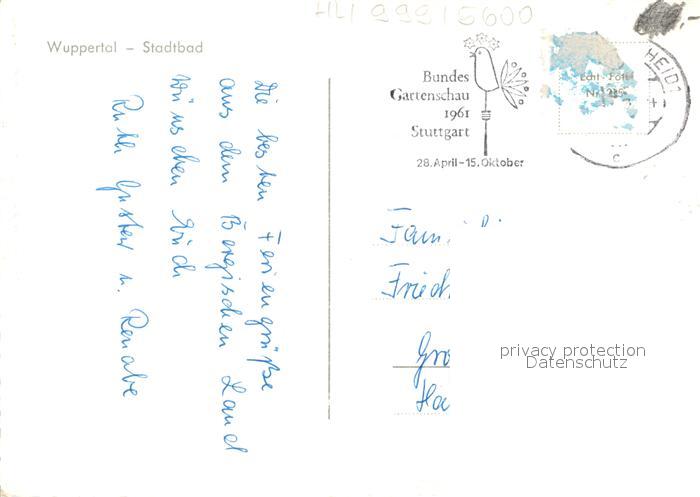 HL1 9991 5600
Wuppertal – Stadtbad
Die besten Feriengrüße
aus dem Bergischen Land
wünschen Euch
Ruth, Gustav u. Renate
Bundes
Gartenschau
1961
Stuttgart
28. April - 15. Oktober
HEID1
c
Echt-Foto
Fam. D.
Fried
Gro
Ha
privacy protection
Datenschutz